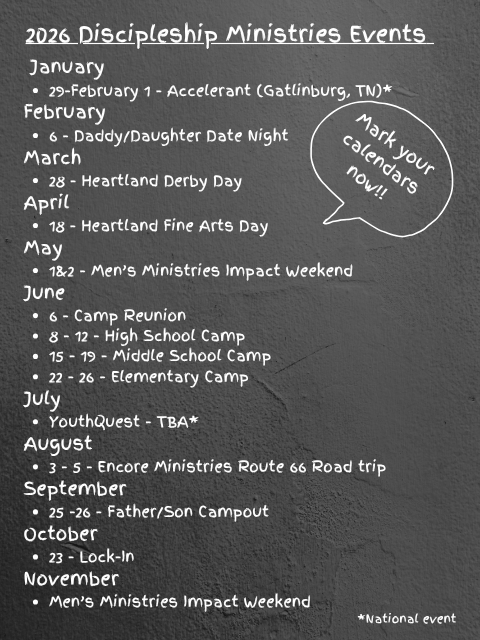 2026 Discipleship Ministries Events
January
• 29-February 1 - Accelerant (Gatlinburg, TN)*
February
• 6 - Daddy/Daughter Date Night
March
• 28 - Heartland Derby Day
April
• 18 - Heartland Fine Arts Day
May
• 1&2 - Men's Ministries Impact Weekend
June
• 6 - Camp Reunion
• 8 - 12 - High School Camp
• 15 - 19 - Middle School Camp
• 22 - 26 - Elementary Camp
July
• YouthQuest - TBA*
August
• 3 - 5 - Encore Ministries Route 66 Road trip
September
• 25 -26 - Father/Son Campout
October
• 23 - Lock-In
November
• Men's Ministries Impact Weekend
Mark your
calendars
now!!
*National event